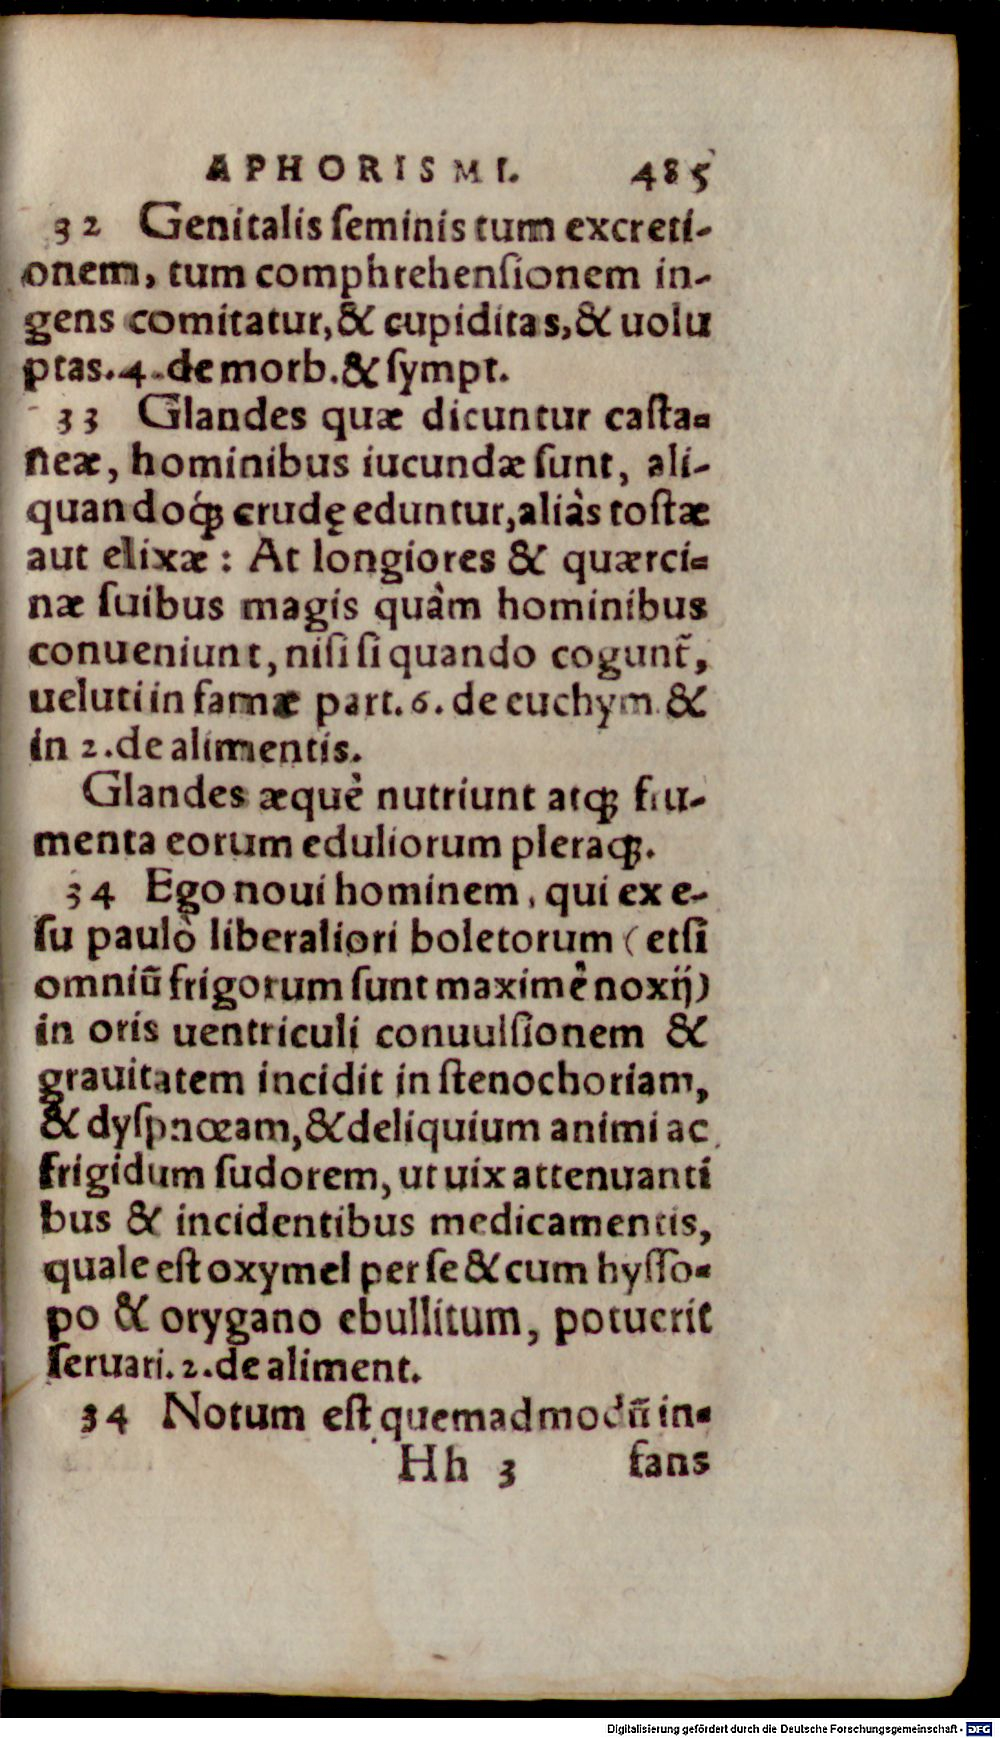 APHORISMI. 485
32 Genitalis ſeminis tum excreti-
onem, tum comphrehenſionem in-
gens comitatur, & cupiditas, & uolu
ptas. 4. de morb. & ſympt.
33 Glandes quæ dicuntur caſta-
neæ, hominibus iucundæ ſunt, ali-
quandoq́ꝫ crudę eduntur, aliàs toſtæ
aut elixæ : At longiores & quærci-
næ ſuibus magis quàm hominibus
conueniunt, niſi ſi quando cogunt̃,
ueluti in famæ part. 6. de euchym. &
in 2. de alimentis.
Glandes æquè nutriunt atqꝫ fru-
menta eorum eduliorum pleraqꝫ.
34 Ego noui hominem, qui ex e-
ſu paulò liberaliori boletorum (etſi
omniũ frigorum ſunt maximè noxij)
in oris uentriculi conuulſionem &
grauitatem incidit in ſtenochoriam,
& dyſpnœam, & deliquium animi ac
frigidum ſudorem, ut uix attenuanti
bus & incidentibus medicamentis,
quale eſt oxymel per ſe & cum hyſſo-
po & orygano ebullitum, potuerit
ſeruari. 2. de aliment.
34 Notum eſt quemadmodũ in-
Hh 3 fans
Digitalisierung gefördert durch die Deutsche Forschungsgemeinschaft - DFG